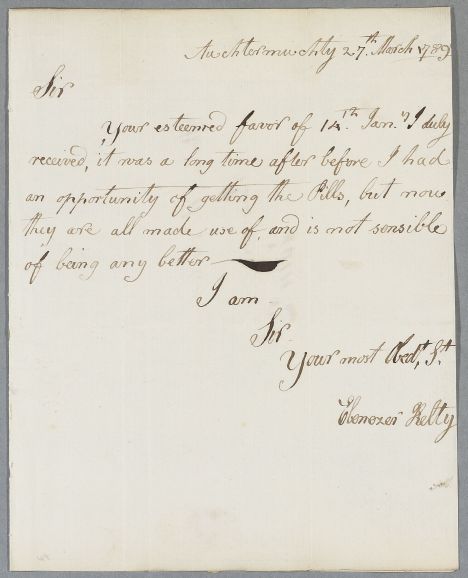 Auchtermuchty 27.th March 1789
Sir
Your esteemed favor of 14.th Jan.y I duly
received, it was a long time after before I had
an opportunity of getting the Pills, but now
they are all made use of, and is not sensible
of being any better
I am
Sir
Your most Obed.t S.t
Ebenezer Kelty